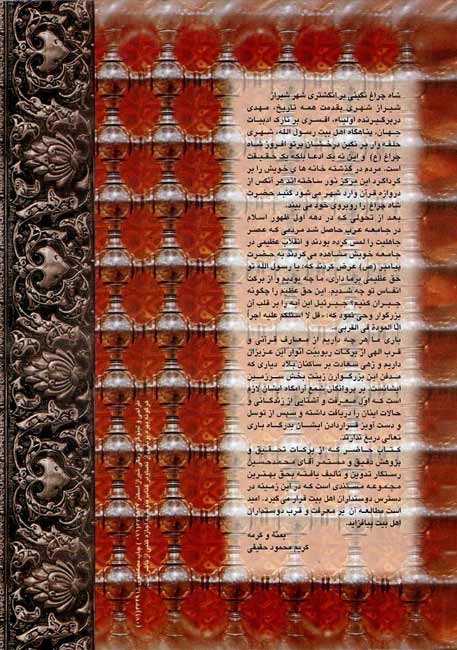 شاه چراغ نگینی بر انگشتری شهر شیراز
شیراز شهری بقدمت همه تاریخ، مهدی
دربرگیرنده اولیاء، افسری بر تارک ادبیات
جهان، پناهگاه اهل بیت رسول الله، شهری
حلقه وار بر نگین درخشان پرتو افروز شاه
چراغ (ع) و این نه یک ادعا بلکه یک حقیقت
است. مردم در گذشته خانه های خویش را بر
گرداگرد این مرکز نور ساخته اند هر آنکس از
دروازه قرآن وارد شهر می شود گنبد حضرت
شاه چراغ را روبروی خود می بیند.
بعد از تحولی که در دهه اول ظهور اسلام
در جامعه عرب حاصل شد مردمی که عصر
جاهلیت را لمس کرده بودند و انقلاب عظیمی در
جامعه خویش مشاهده می کردند به حضرت
پیامبر (ص) عرض کردند که: یا رسول الله تو
حق عظیمی بر ما داری، ما چه بودیم و از برکت
انفاس تو چه شدیم. این حق عظیم را چگونه
جبران کنیم؟ جبرئیل این آیه را بر قلب آن
بزرگوار وحی نمود که: «قل لا اسئلکم علیه اجراً
الّا المودة فی القربی».
باری ما هر چه داریم از معارف قرآنی و
قرب الهی از برکات ربوبیت انوار این عزیزان
داریم و زهی سعادت بر ساکنان بلاد دیاری که
مدفن این بزرگواران زینت بخش سرزمین
ایشانست. بر پروانگان شمع آرامگاه ایشان لازم
است که اول معرفت و آشنایی از زندگانی و
حالات اینان را دریافت داشته و سپس از توسل
و دست آویز قراردادن ایشان بدرگاه باری
تعالی دریغ ندارند.
کتاب حاضر که از برکات تحقیق و
پژوهش دقیق و مستمر آقای محمدحسین
رستگار تدوین و تألیف یافته بحق بهترین
مجموعه مستندی است که در این زمینه در
دسترس دوستداران اهل بیت قرار می گیرد. امید
است مطالعه آن بر معرفت و قرب دوستداران
اهل بیت بیافزاید.
بمنّه و کرمه
کریم محمود حقیقی